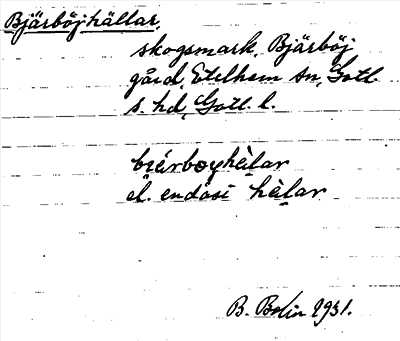 Bjärböjhällar,
skogsmark, Bjärböj
gård, Etelhem sn, Gotl.
s. hd, Gotl. l.
bjárboyhàlar
el. endási hàlar
B. Bolin 1931.